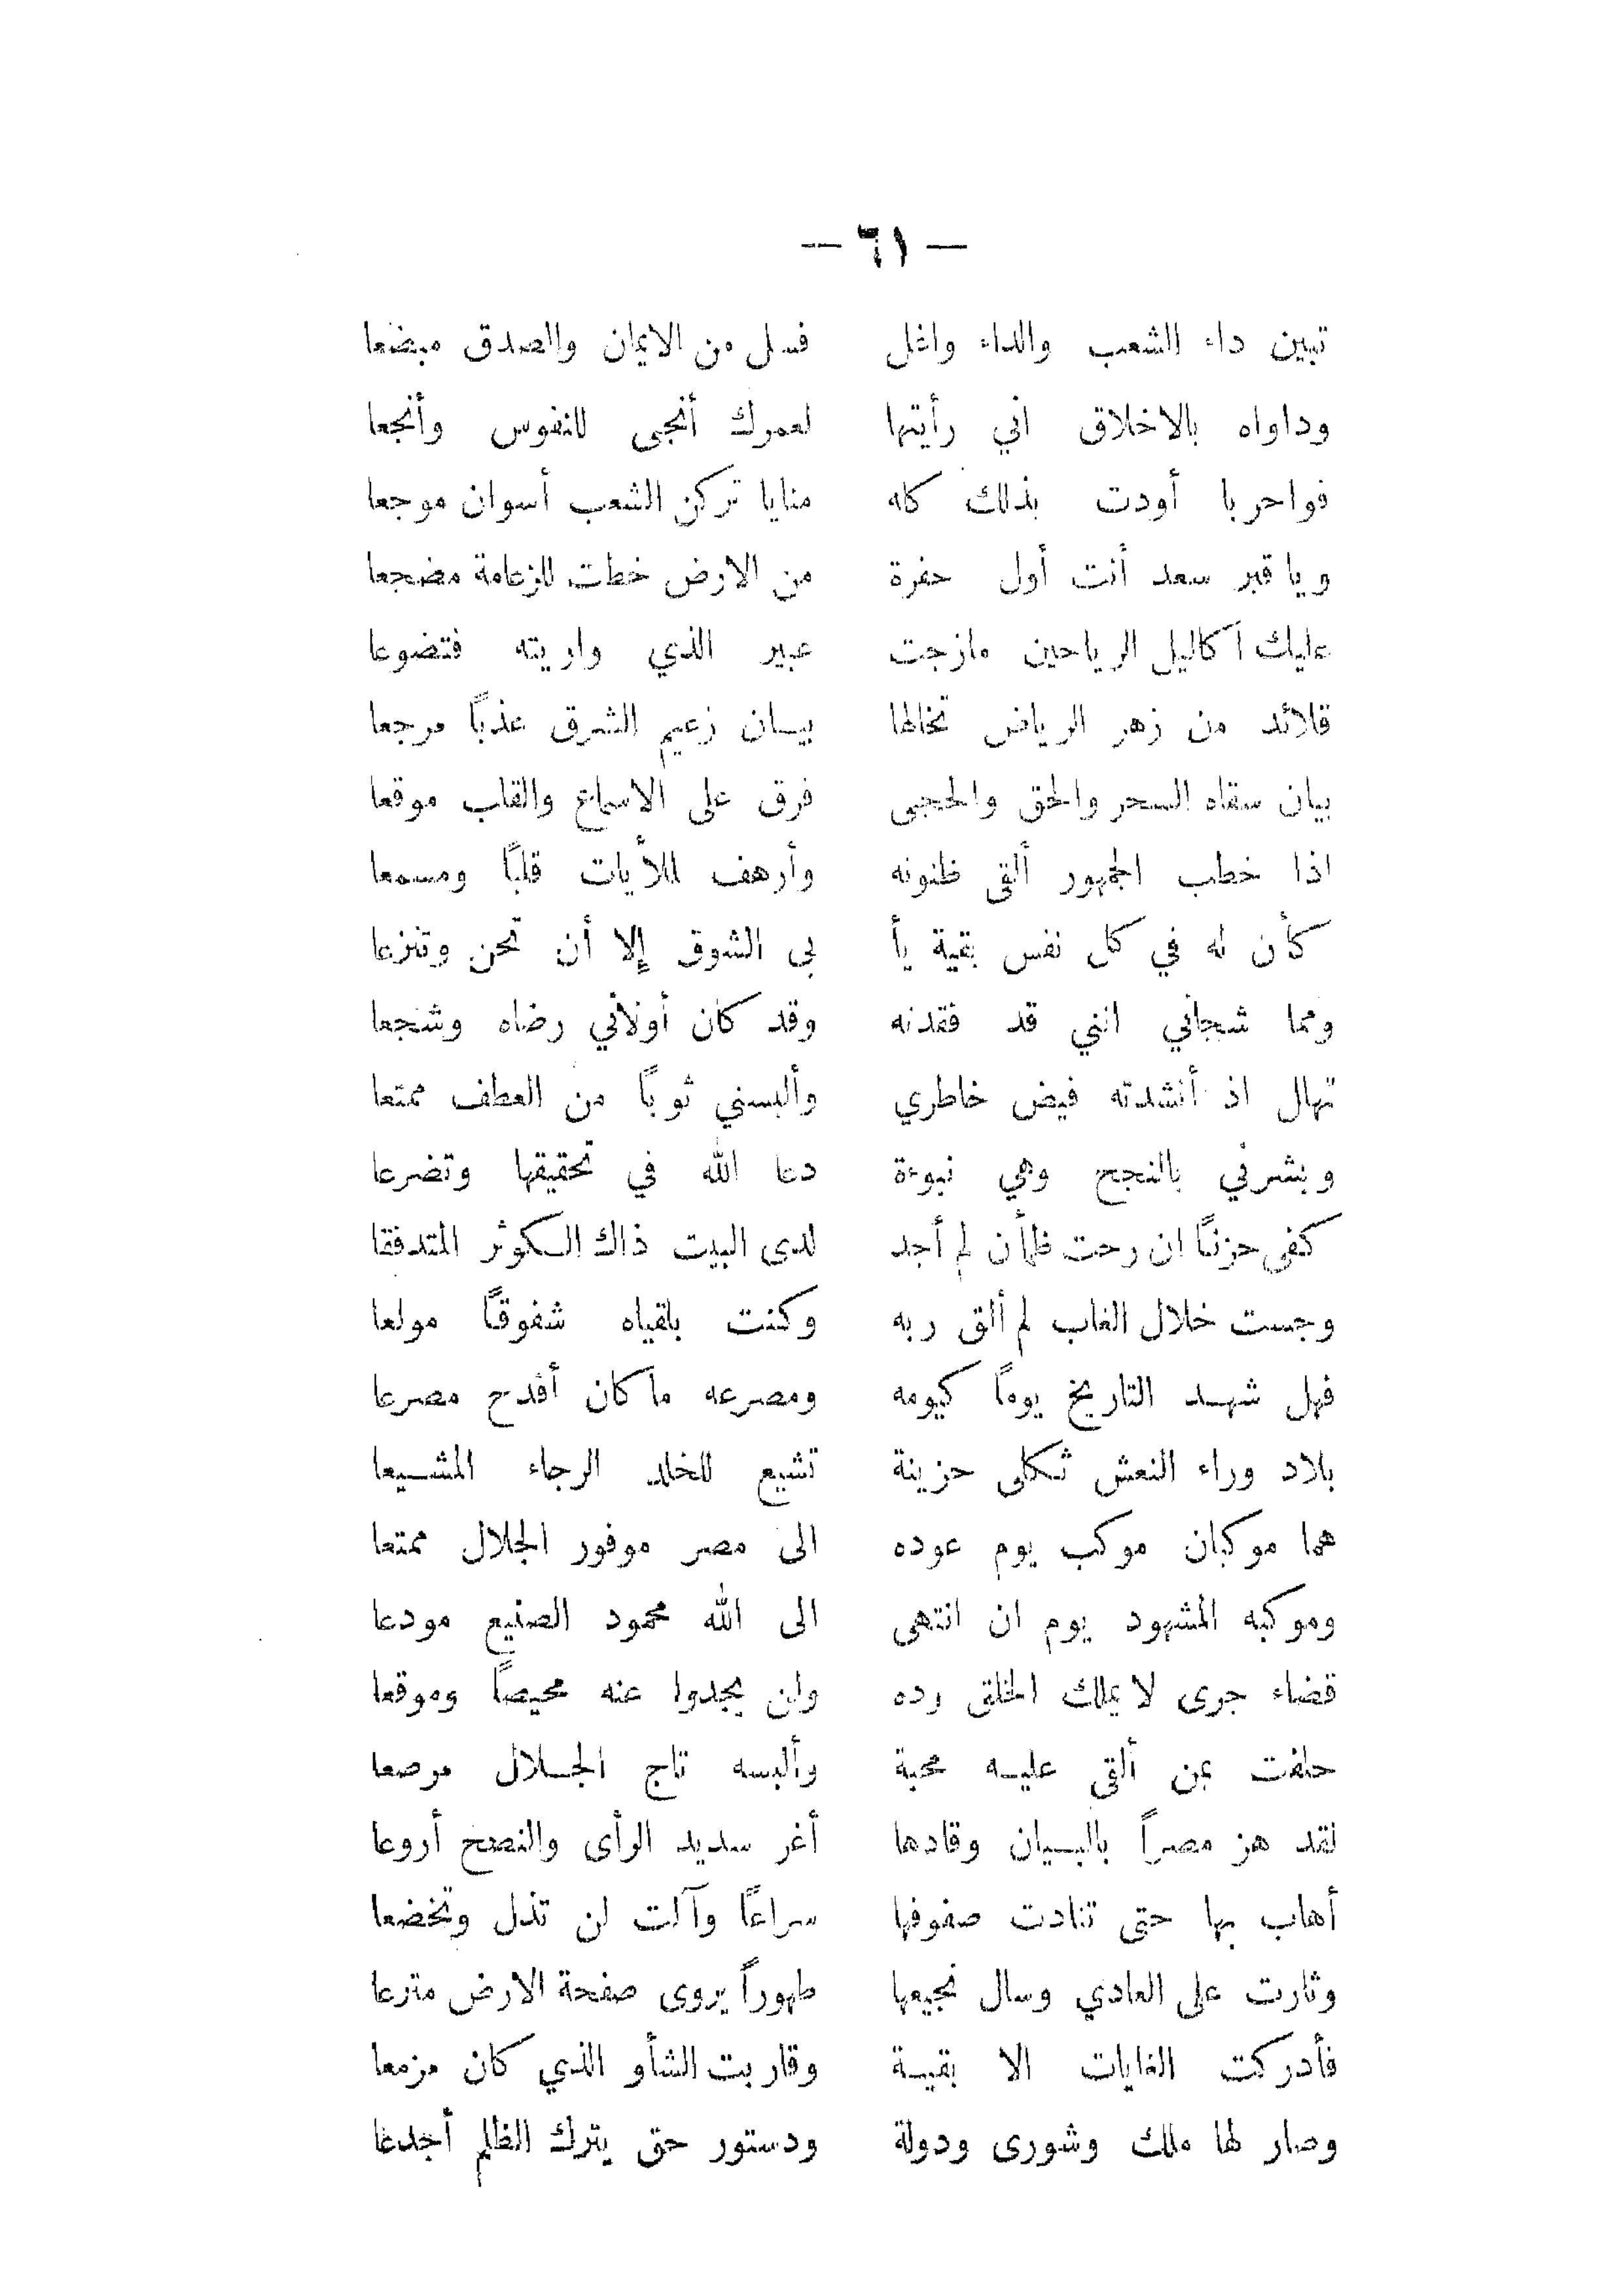 — ٦١ —
تبين داء الشعب والداء واغل فسل من الايمان والصدق مبضعا
وداواه بالاخلاق اني رأيتها لعمرك أنجى للنفوس وأنجعا
فواحربا أودت بذلك كله منايا تركن الشعب أسوان موجعا
ويا قبر سعد أنت أول حفرة من الارض خطت للزعامة مضجعا
عليك اكاليل الرياحين مازجت عبير الذي واريته فتضوعا
قلائد من زهر الرياض تخالها بيان زعيم الشرق عذبًا مرجعا
بيان سقاه السحر والحق والحجى فرق على الاسماع والقلب موقعا
اذا خطب الجمهور ألقى ظنونه وأرهف للأيات قلبًا ومسمعا
كأن له في كل نفس بقية يأ بى الشوق إلا أن تحن وتنزعا
ومما شجاني انني قد فقدته وقد كان أولاني رضاه وشجعا
تهلل اذ أنشدته فيض خاطري وألبسني ثوبًا من العطف ممتعا
وبشرني بالنجح وهي نبوءة دعا الله في تحقيقها وتضرعا
كفى حزنًا ان رحت ظمأن لم أجد لدى البيت ذاك الكوثر المتدفقا
وجست خلال الغاب لم ألق ربه وكنت بلقياه شفوقًا مولعا
فهل شهد التاريخ يومًا كيومه ومصرعه ما كان أفدح مصرعا
بلاد وراء النعش ثكلى حزينة تشيع للخلد الرجاء المشيعا
هما موكبان موكب يوم عوده الى مصر موفور الجلال ممتعا
وموكبه المشهود يوم ان انتهى الى الله محمود الصنيع مودعا
قضاء جرى لا يملك الخلق رده ولن يجدوا عنه محيصًا وموقعا
حلفت بمن ألقى عليه محبة وألبسه تاج الجلال مرصعا
لقد هز مصراً بالبيان وقادها أغر سديد الرأى والنصح أروعا
أهاب بها حتى تنادت صفوفها سراعًا وآلت لن تذل وتخضعا
وثارت على العادي وسال نجيعها طهوراً يروى صفحة الارض مترعا
فأدركت الغايات الا بقية وقاربت الشأو الذي كان مزمعا
وصار لها ملك وشورى ودولة ودستور حق يترك الظلم أجدعا